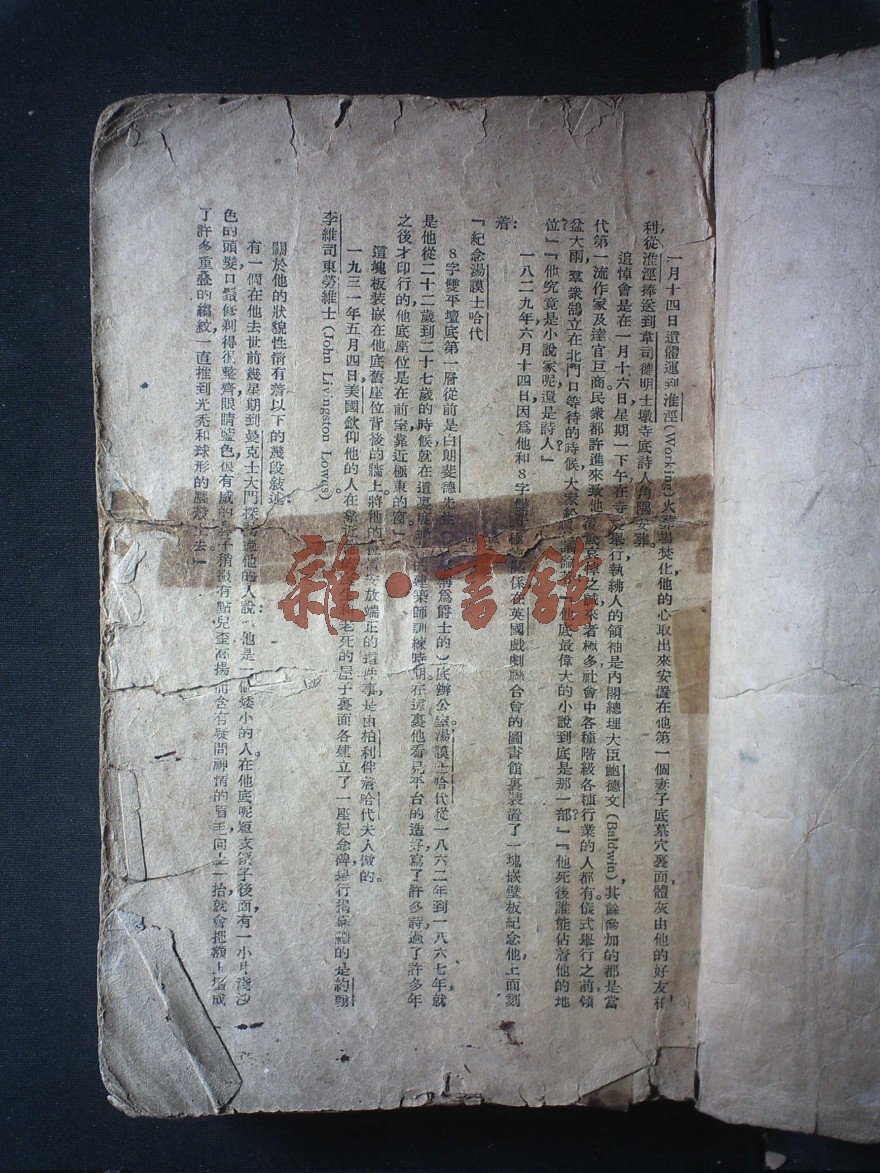 一月十四日遺體運到淮涇(Working)火葬場焚化他的心取出來安置在他第一個妻子底墓穴裏面體灰由他的好友柏
利從淮涇捧送到韋司德明士墩寺底詩人角隅安葬。
追悼會是在一月十六日星期一下午在寺舉行執紼人的領袖是內閣總理大臣鮑德文(Baldwin),其餘參加的都是當
代第一流作家及達官巨商民衆都許進來致他哀悼之誠來者極多社會中各種階級各種行業的人都有儀式舉行之前傾
盆大雨,羣衆鵠立在北門口等待的時候,大家『他底最偉大的小說到底是那一部?』『他死後誰能佔着他的地
位?』『他究竟是小說家呢還是詩人?』
一八二九年六月十四日因爲他和8字關係在英國戲劇聯合會的圖書館裏裝置了一塊嵌壁板紀念他,上面刻
着:
『紀念湯謨士哈代
8字雙平壇底第一層從前是白朗斐德先生爲爵士的)底辦公室。湯謨士哈代從一八六二年到一八六七年就
是他從二十二歲到二十七歲的時候就在這裏度建築師訓練時期在這裏他看見平台的造好,寫了許多詩,過了許多年
之後才印行的他底座位是在前室靠近極東的窗。』
這塊板裝嵌在他底舊座位背後的牆上。將他的安放端正的這件事是由柏利伴着哈代夫人做的。
一九三一年五月四日美國欽仰他的人在靠近老死的屋子裏面各建立了一座紀念碑舉行揭幕禮的是約翰
李維司東勞維士(John Livingston Lowes)
關於他的狀貌性情有着以下的幾段敍述:
有一個在他去世前幾星期到曼克士大門探他的人說:『他是一個矮小的人在他底呢短文子後面有一小片淺沙
色的頭髮口鬚修剃得很整齊眼睛藍色很有威的稍微有點兒歪高揚而含有疑問神情的眉毛向上一抬,就會把額上堆成
了許多重叠的縐紋一直推到光禿和球形的腦殼上去。』
雜·書館